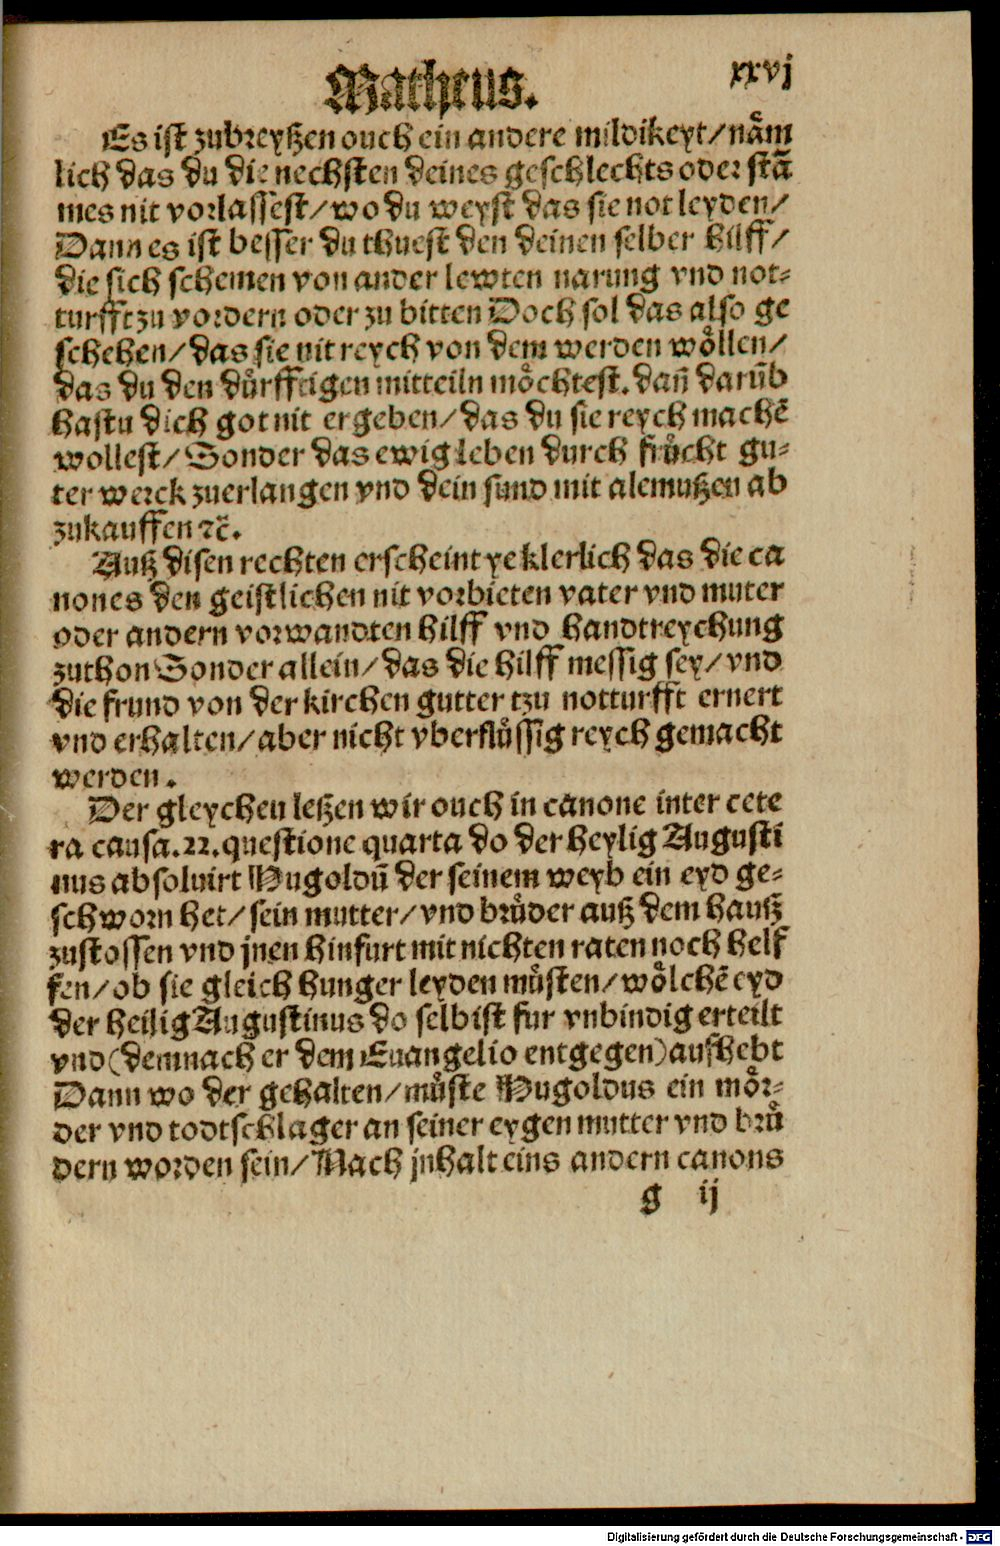 Matheus.
xxvj
Es ist zubreyßen ouch ein andere mildikeyt/nåm
lich das du die nechsten deines geschlechts oder stā
mes nit vorlassest/wo du weyst das sie not leyden/
Dann es ist besser du thuest den deinen selber hilff/
die sich schemen von ander lewten narung vnd not-
turfft zu vordern oder zu bitten Doch sol das also ge
schehen/das sie nit reych von dem werden wöllen/
das du den dürfftigen mitteiln möchtest. dañ darūb
hastu dich got nit ergeben/das du sie reych machē
wollest/Sonder das ewig leben durch frücht gu-
ter werck zuerlangen vnd dein sund mit alemußen ab
zukauffen ⁊c̄.
Auß disen rechten erscheint ye klerlich das die ca
nones den geistlichen nit vorbieten vater vnd muter
oder andern vorwandten hilff vnd handtreychung
zuthon Sonder allein/das die hilff messig sey/vnd
die frund von der kirchen gutter tzu notturfft ernert
vnd erhalten/aber nicht vberflüssig reych gemacht
werden.
Der gleychen leßen wir ouch in canone inter cete
ra causa.22.questione quarta do der heylig Augusti
nus absoluirt Hugoldū der seinem weyb ein eyd ge-
schworn het/sein mutter/vnd brüder auß dem hauß
zustossen vnd jnen hinfurt mit nichten raten noch helf
fen/ob sie gleich hunger leyden müsten/wölchē eyd
der heilig Augustinus do selbist fur vnbindig erteilt
vnd (demnach er dem Euangelio entgegen) aufhebt
Dann wo der gehalten/müste Hugoldus ein mör-
der vnd todtschlager an seiner eygen mutter vnd brü
dern worden sein/Nach jnhalt eins andern canons
g ij
Digitalisierung gefördert durch die Deutsche Forschungsgemeinschaft - DFG